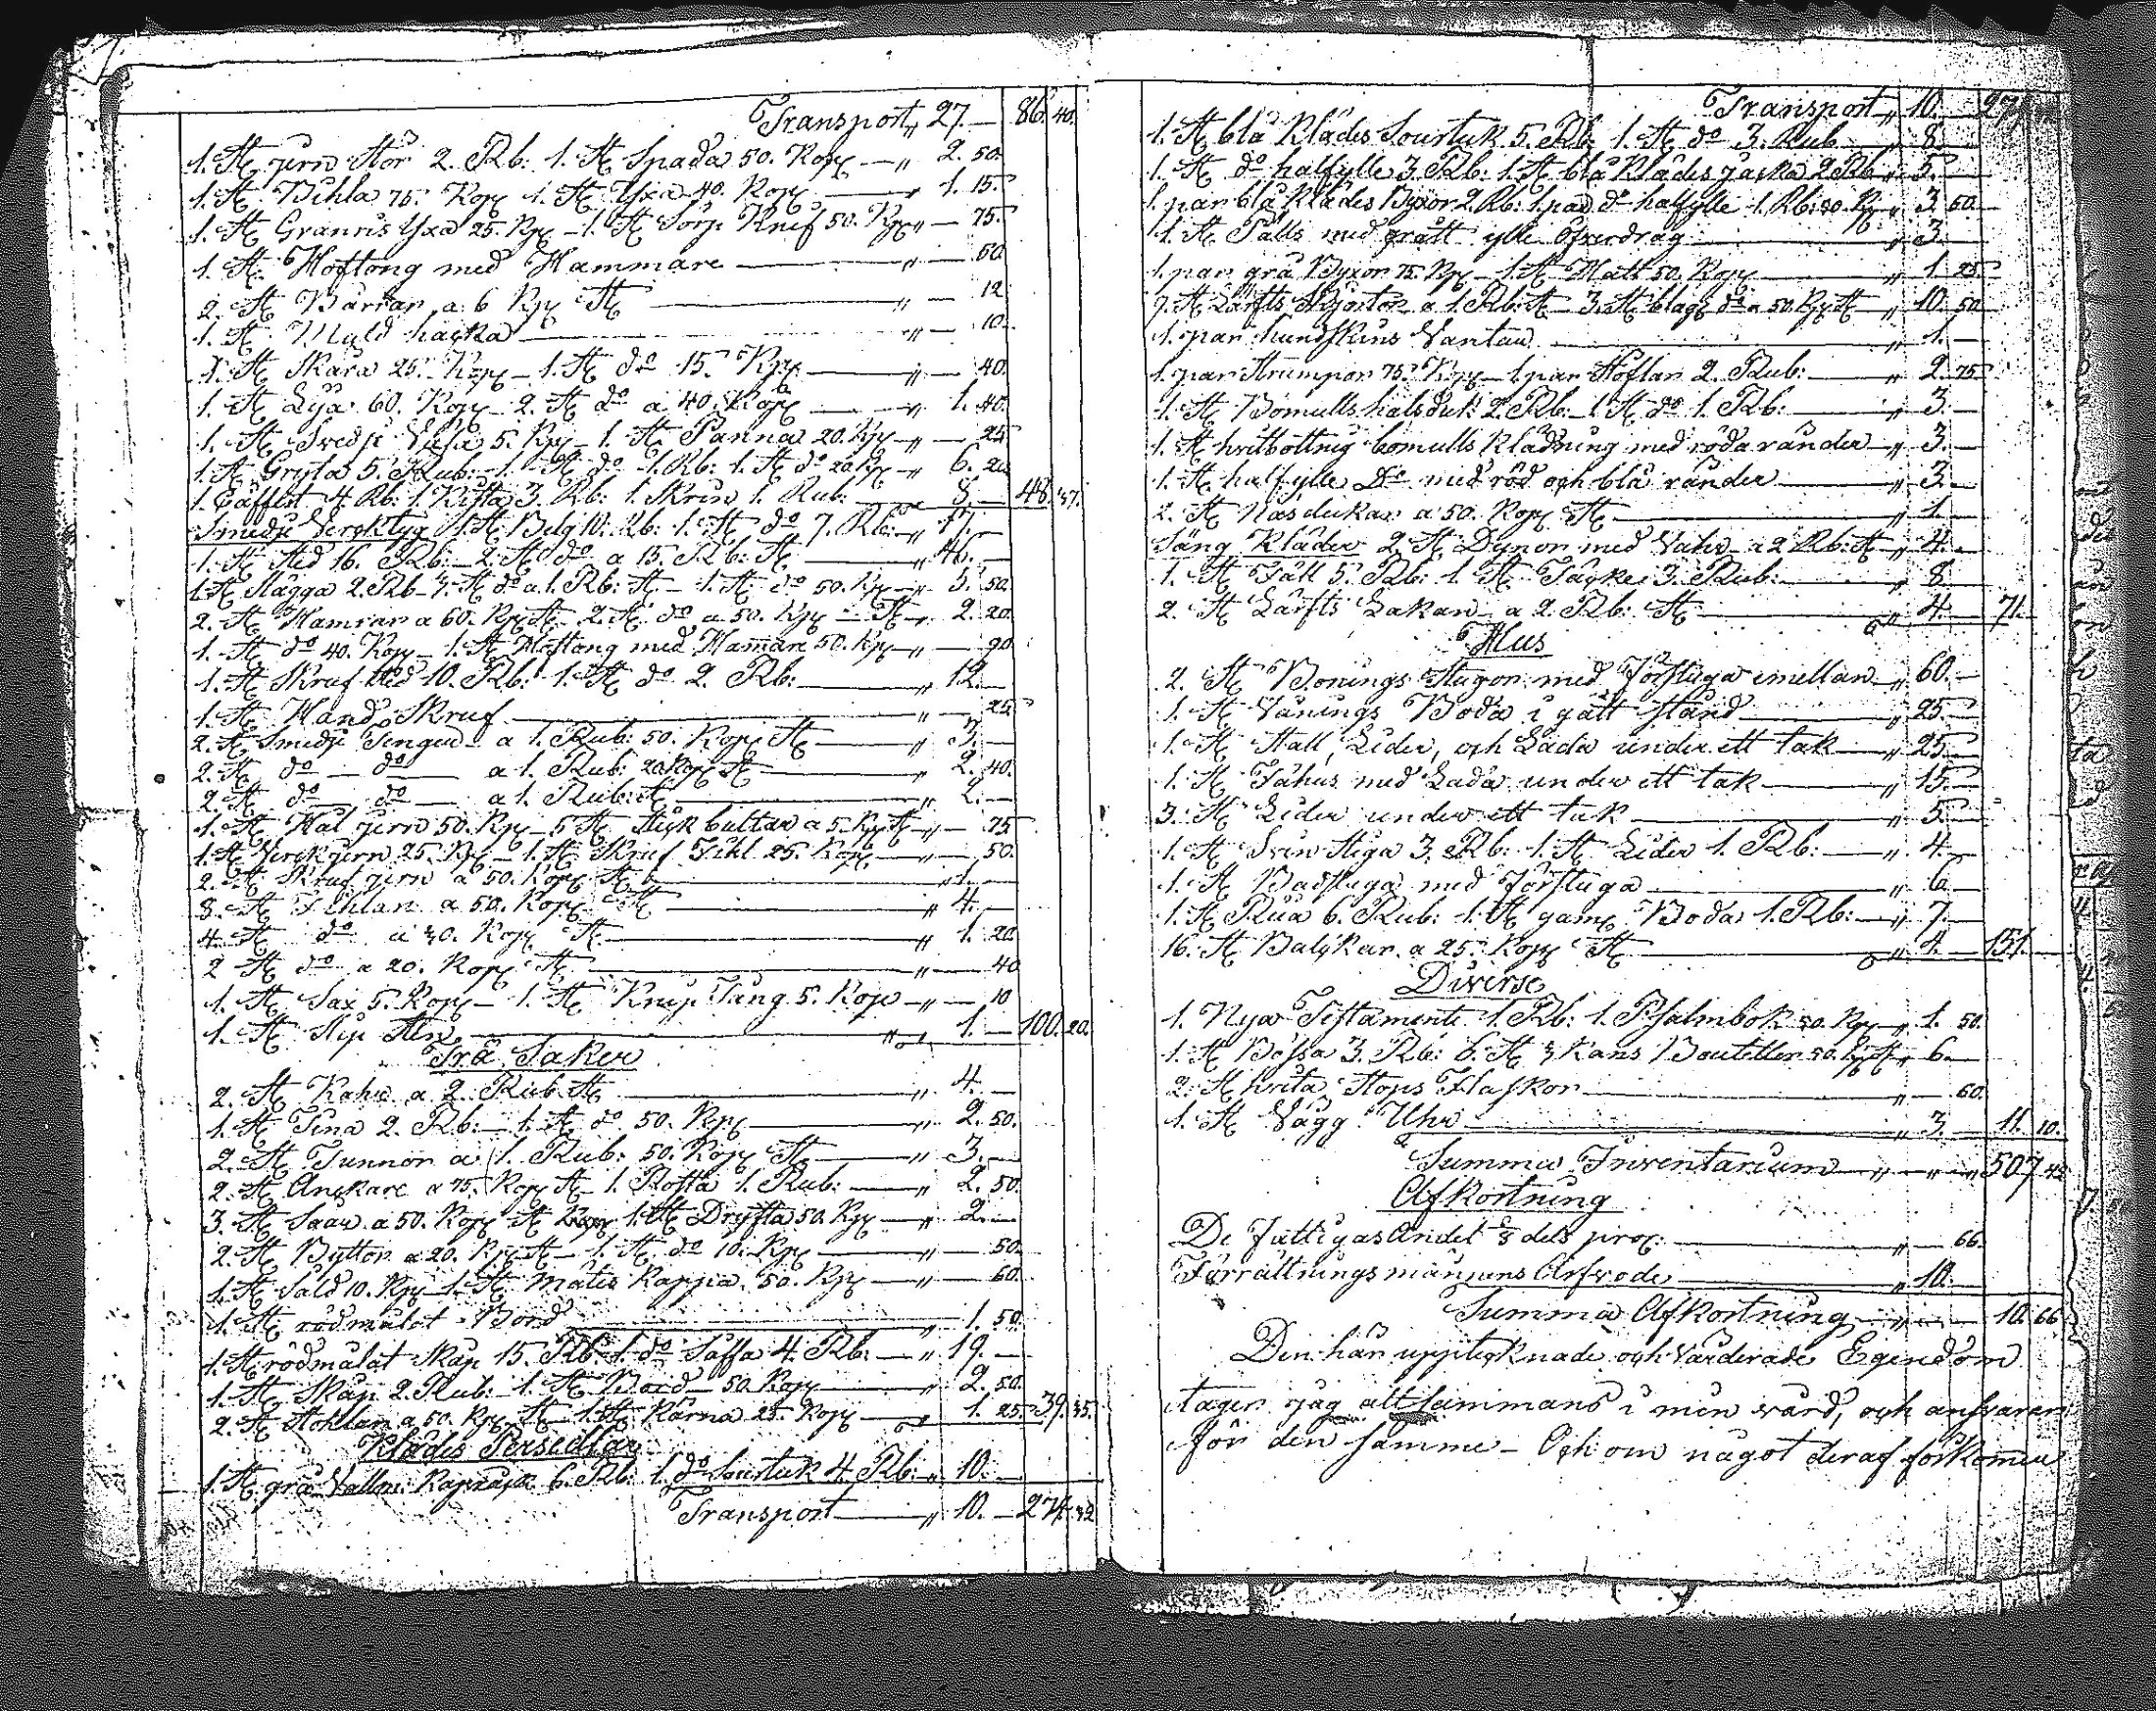 Transport „ 27. — 86. 40.
1. St. jern Stör 2. Rb: 1. St. Spada 50. Kop — „ 2. 50.
1. St. Bihla 75. Kop 1. St. Yxa 40. Kop — „ 1. 15.
1. St. Granris Yxa 25. Kp — 1. St. Sörp Knif 50. Kp „ — 75.
1. St. Hoftong med Hammare — „ — 50.
2. St. a 6 Kp St. — „ — 12
1. St. Muld hacka — „ — 10.
1. St. Skära 25. Kop — 1. St. do 15. Kp — „ — 40.
1. St. Lija 60. Kop 2. St. do a 40. Kop — „ 1. 40.
1. St. Svedje 5. Kp — 1. St. Panna 20. Kp — „ — 25
1. St. Gryta 5. Rub: — 1. St. do 1. Rb: 1. St. do 20 Kp — „ 6. 20
1. 4. Rb: 1. Kista 3. Rb: 1. Skrin 1. Rub: — „ 8. — 48. 47.
Smedje Verktyg 1. St. Belg 10. Rb: 1. St. do 7. Rb: — „ 17. —
1. St. Sted 16. Rb: — 2. St. do a 15. Rb: St. — „ 46. —
1. St. Slägga 2. Rb — St. do a 1. Rb: St. — 1. St. do 50. Kp — „ 50.
2. St. Hamrar a 60. Kp St. 2. St. do a 50. Kp — St. „ 2. 20.
1. St. do 40. Kop — 1. St. Hoftong med Hamare 50. Kp — „ — 90.
1. St. Skruf sted 10. Rb: 1. St. do 2. Rb: — „ 12. —
1. St. Hand Skruf — „ — 25.
2. St. Smidje Tenger a 1. Rub: 50. Kop St. — „ 3. —
2. St. do — do — a 1. Rub: 20 Kop St. — „ 2. 40.
2. St. do — do — a 1. Rub: St. — „ 2. —
1. St. Hål jern 50. Kp — 5 St. Styk bultar a 5 Kp St. — „ — 75.
1. St. Verck jern 25. Kp — 1. St. Skruf Fihl 25. Kop — „ — 50.
2. St. Skruf jern a 50. Kop St. — „ 1. —
8. St. Fihlar a 50. Kop St. — „ 4. —
4. St. do a 30. Kop St. — „ 1. 20.
2 St. do a 20. Kop St. — „ — 40
1. St. Sax 5. Kop — 1. St. Knip Tång 5. Kop — „ — 10
1. St. Slip Sten — „ 1. — 100. 20.
Trä Saker
2. St. Kahr a 2. Rub St. — „ 4. —
1. St. Tina 2. Rb: — 1. St. do 50. Kp — „ 2. 50.
2. St. Tunnor a 1. Rub: 50. Kop St. — „ 3. —
2. St. Anckare a 75. Kop St. 1. 1. Rub: — „ 2. 50.
3. St. Såar a 50. Kop St. 1. St. Dryfta 50. Kp — „ 2. —
2. St. Byttor a 20. Kp St. — 1. St. do 10. Kp — „ — 50.
1. St. Såld 10. Kp — 1. St. Mätes Kappa 50. Kp — „ — 60.
1. St. rödmålat Bord — „ 1. 50.
1. St. rödmålat Skåp 15. Rb: 1. do Saffa 4. Rb: — „ 19. —
1. St. Skåp 2. Rub: — 1. St. Bord — 50. Kop — „ 2. 50.
2. St. Stohlar a 50. Kp St. — 1. St. Kärna 25. Kop — „ 1. 25. 39. 35.
Klädes Persedlar
1. St. grå Vallm. 6. Rb: 1. do Sourtuk 4. Rb: „ 10. —
Transport — „ 10. — 274. 42
Transport „ 10. — 274.
1. St. blå Klädes Sourtuk 5. Rb: 1. St. do 3. Rub — „ 8. —
1. St. do halfylle 3. Rb: 1. St. blå Klädes jacka 2 Rb „ 5. —
1. par blå Klädes Byxor 2. Rb: 1. par do halfylle 1. Rb: 50. Kp „ 3. 50.
1. St. Pälls med grått ylle Öfverdrag — „ 3. —
1. par grå Byxor 75. Kp — 1. St. Hatt 50. Kop — „ 1. 25.
9. St. Lärfts Skjortor a 1. Rb: St. 3. St. blag: do a 50. Kp St. — „ 10. 50.
1. par hundskins Vantar — „ 1. —
1. par Strumpor 75. Kp — 1. par Stöflar 2. Rub: — „ 2. 75.
1. St. Bomulls halsduk 2. Rb: — 1. St. do 1. Rb: — „ 3. —
1. St. hvitbottnig bomulls Klädning med röda ränder — „ 3. —
1. St. halfylle Do med röd och blå ränder — „ 3. —
2. St. Näsdukar a 50. Kop St. — „ 1. —
Säng Kläder 2. St. Dynor med Vahr a 2 Rb: St. „ 4. —
1. St. Fäll 5. Rb: 1. St. Täcke 3. Rub: — „ 8. —
2. St. Lärfts Lakan a 2. Rb: St. — „ 4. — 71. —
Hus
2. St. Bonings Stugor med Förstuga emellan „ 60. —
1. St. Vånings Boda i gått stånd — „ 25. —
1. St. Stall, Lider, och Lada under ett tak — „ 25. —
1. St. Fähus med Lada under ett tak — „ 15. —
3. St. Lider under ett tak — „ 5. —
1. St. Svin Stiga 3. Rb: 1. St. Lider 1. Rb: — „ 4. —
1. St. Badstuga med förstuga — „ 6. —
1. St. Ria 6. Rub: 1. St. gam: Boda 1. Rb: — „ 7. —
16. St. Balckar a 25. Kop St. — „ 4. — 151. —
Diverse
1. Nya Testamente 1. Rb: 1. Psalmbok 50. Kp „ 1. 50.
1. St. Bössa 3. Rb: 6. St. Kans Bouteller 50. Kp St. „ 6. —
2. St. hvita Stops Flaskor — „ — 60.
1. St. Vägg Uhr — „ 3. — 11. 10.
Summa Inventarium — „ — „ — „ 507. 42
Afkortning
De Fattigas Andel 1/8 dels proc: — „ — 66.
Förrättningsmännens Arfvode — „ 10. —
Summa Afkortning — „ — 10. 66
Den här uppteknade och Värderade Egendom
tager jag alt samans i min vård, och ansvarar
för den samme — Och om något deraf förkommer